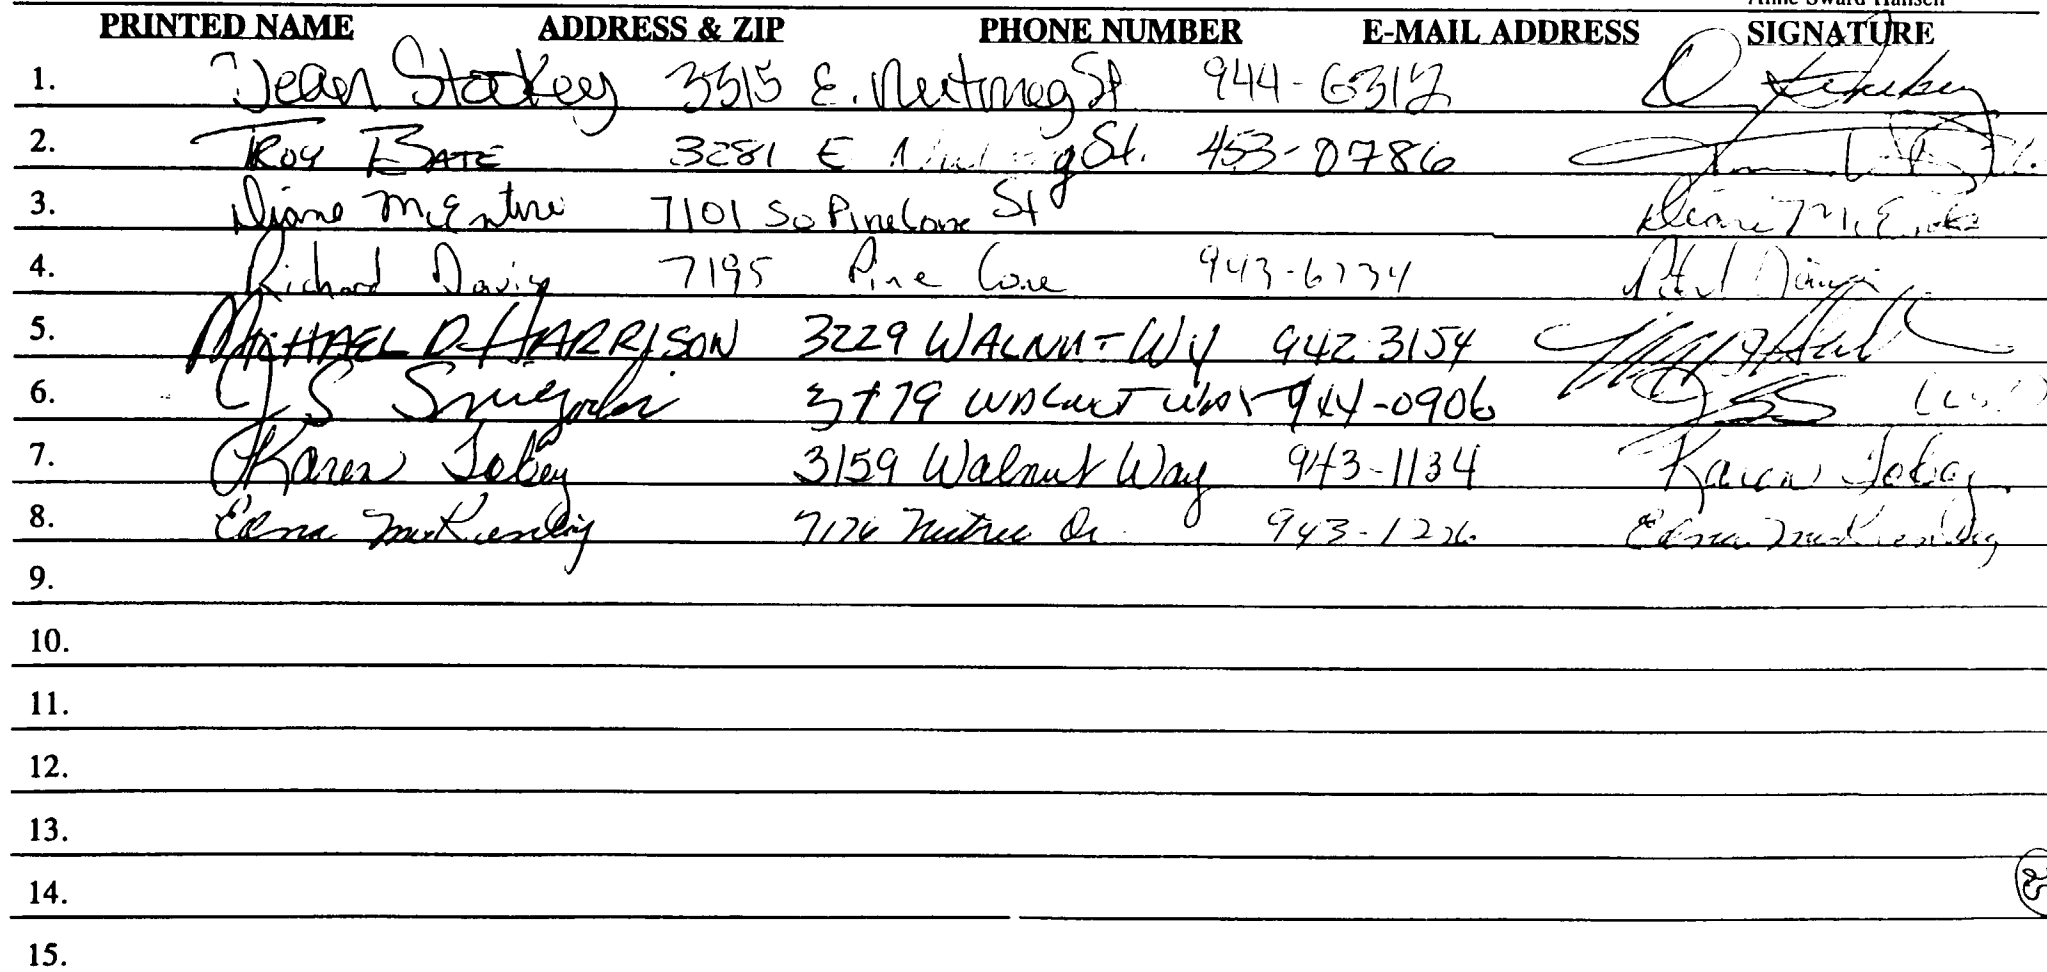 Anne Sward Hansen
PRINTED NAME ADDRESS & ZIP PHONE NUMBER E-MAIL ADDRESS SIGNATURE
1. Dean Stookey 3515 E. Nutmeg St 944-6312
2. TROY BATE 3281 E St. 453-0786
3. Diane McEntire 7101 So PineCone St Diane McEntire
4. Richard Davis 7195 Pine Cone 943-6734
5. MICHAEL D. HARRISON 3229 WALNUT WY 942 3154
6. J S WALNUT WAY 944-0906
7. Karen Tobey 3159 Walnut Way 943-1134 Karen Tobey
8. Edna 7176 Nutree Dr 943-1226 Edna
9.
10.
11.
12.
13.
14.
15.